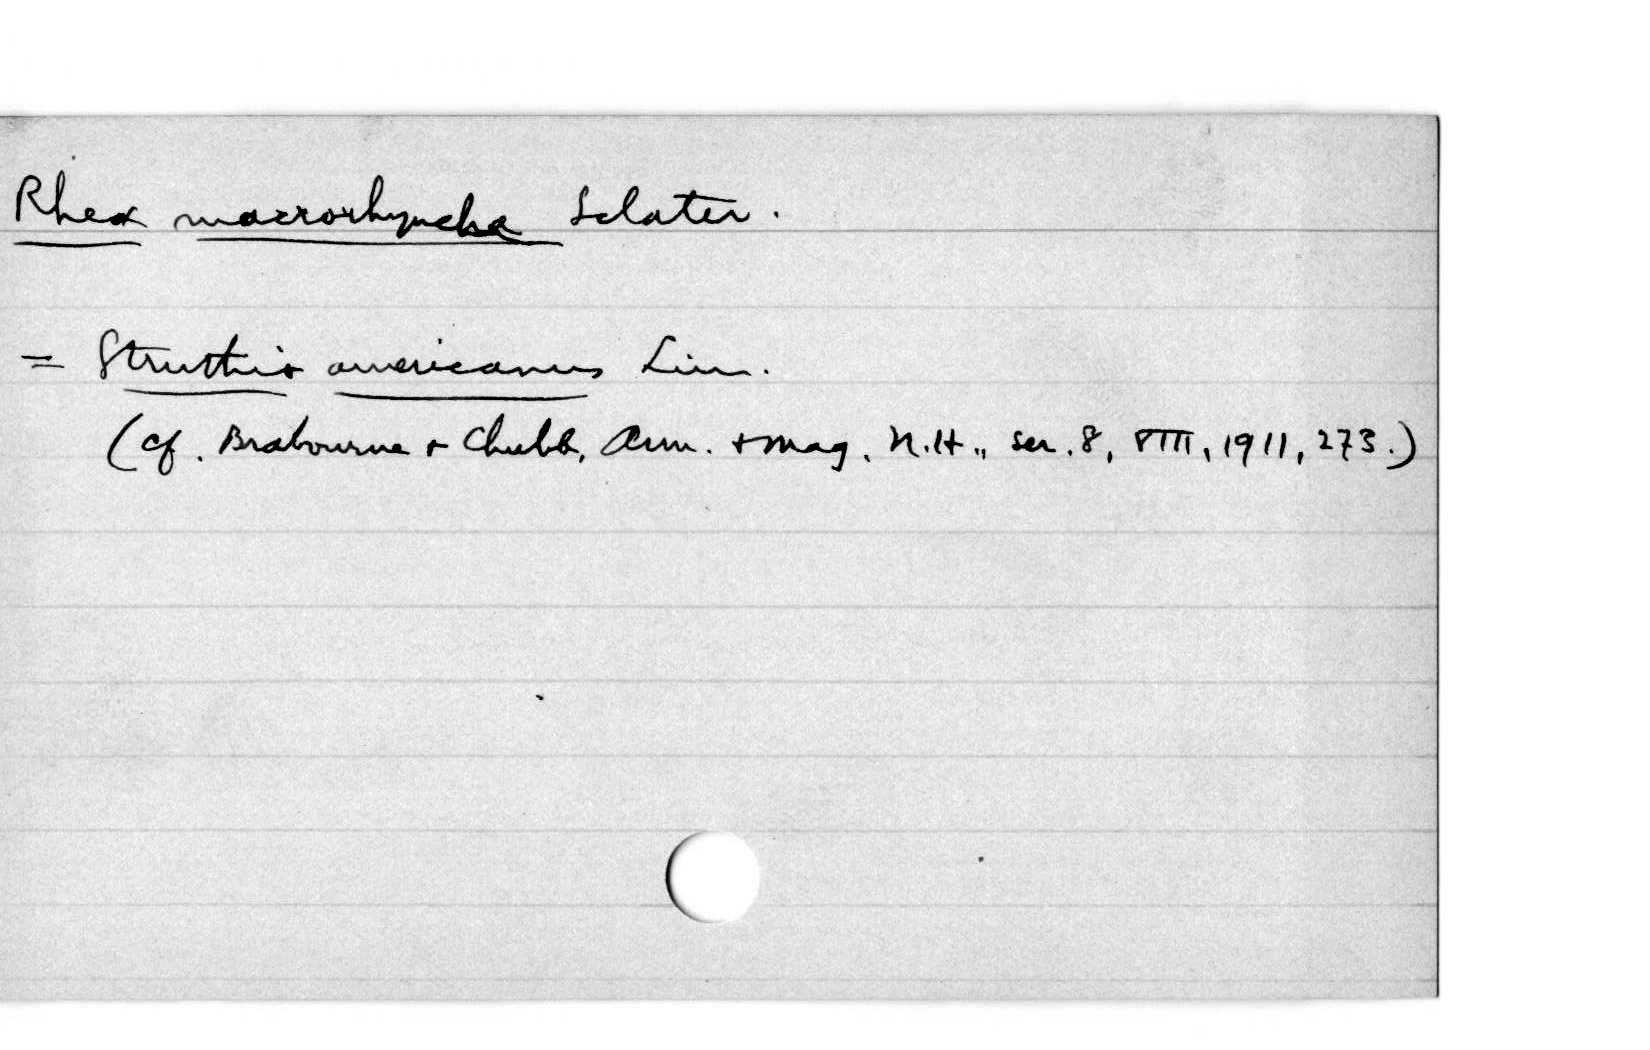 Rhea macrorhyncha Sclater.
= Struthio americanus Linn.
(cf. Brabourne + Chubb, Ann. + Mag. N.H., ser. 8, VIII, 1911, 273.)